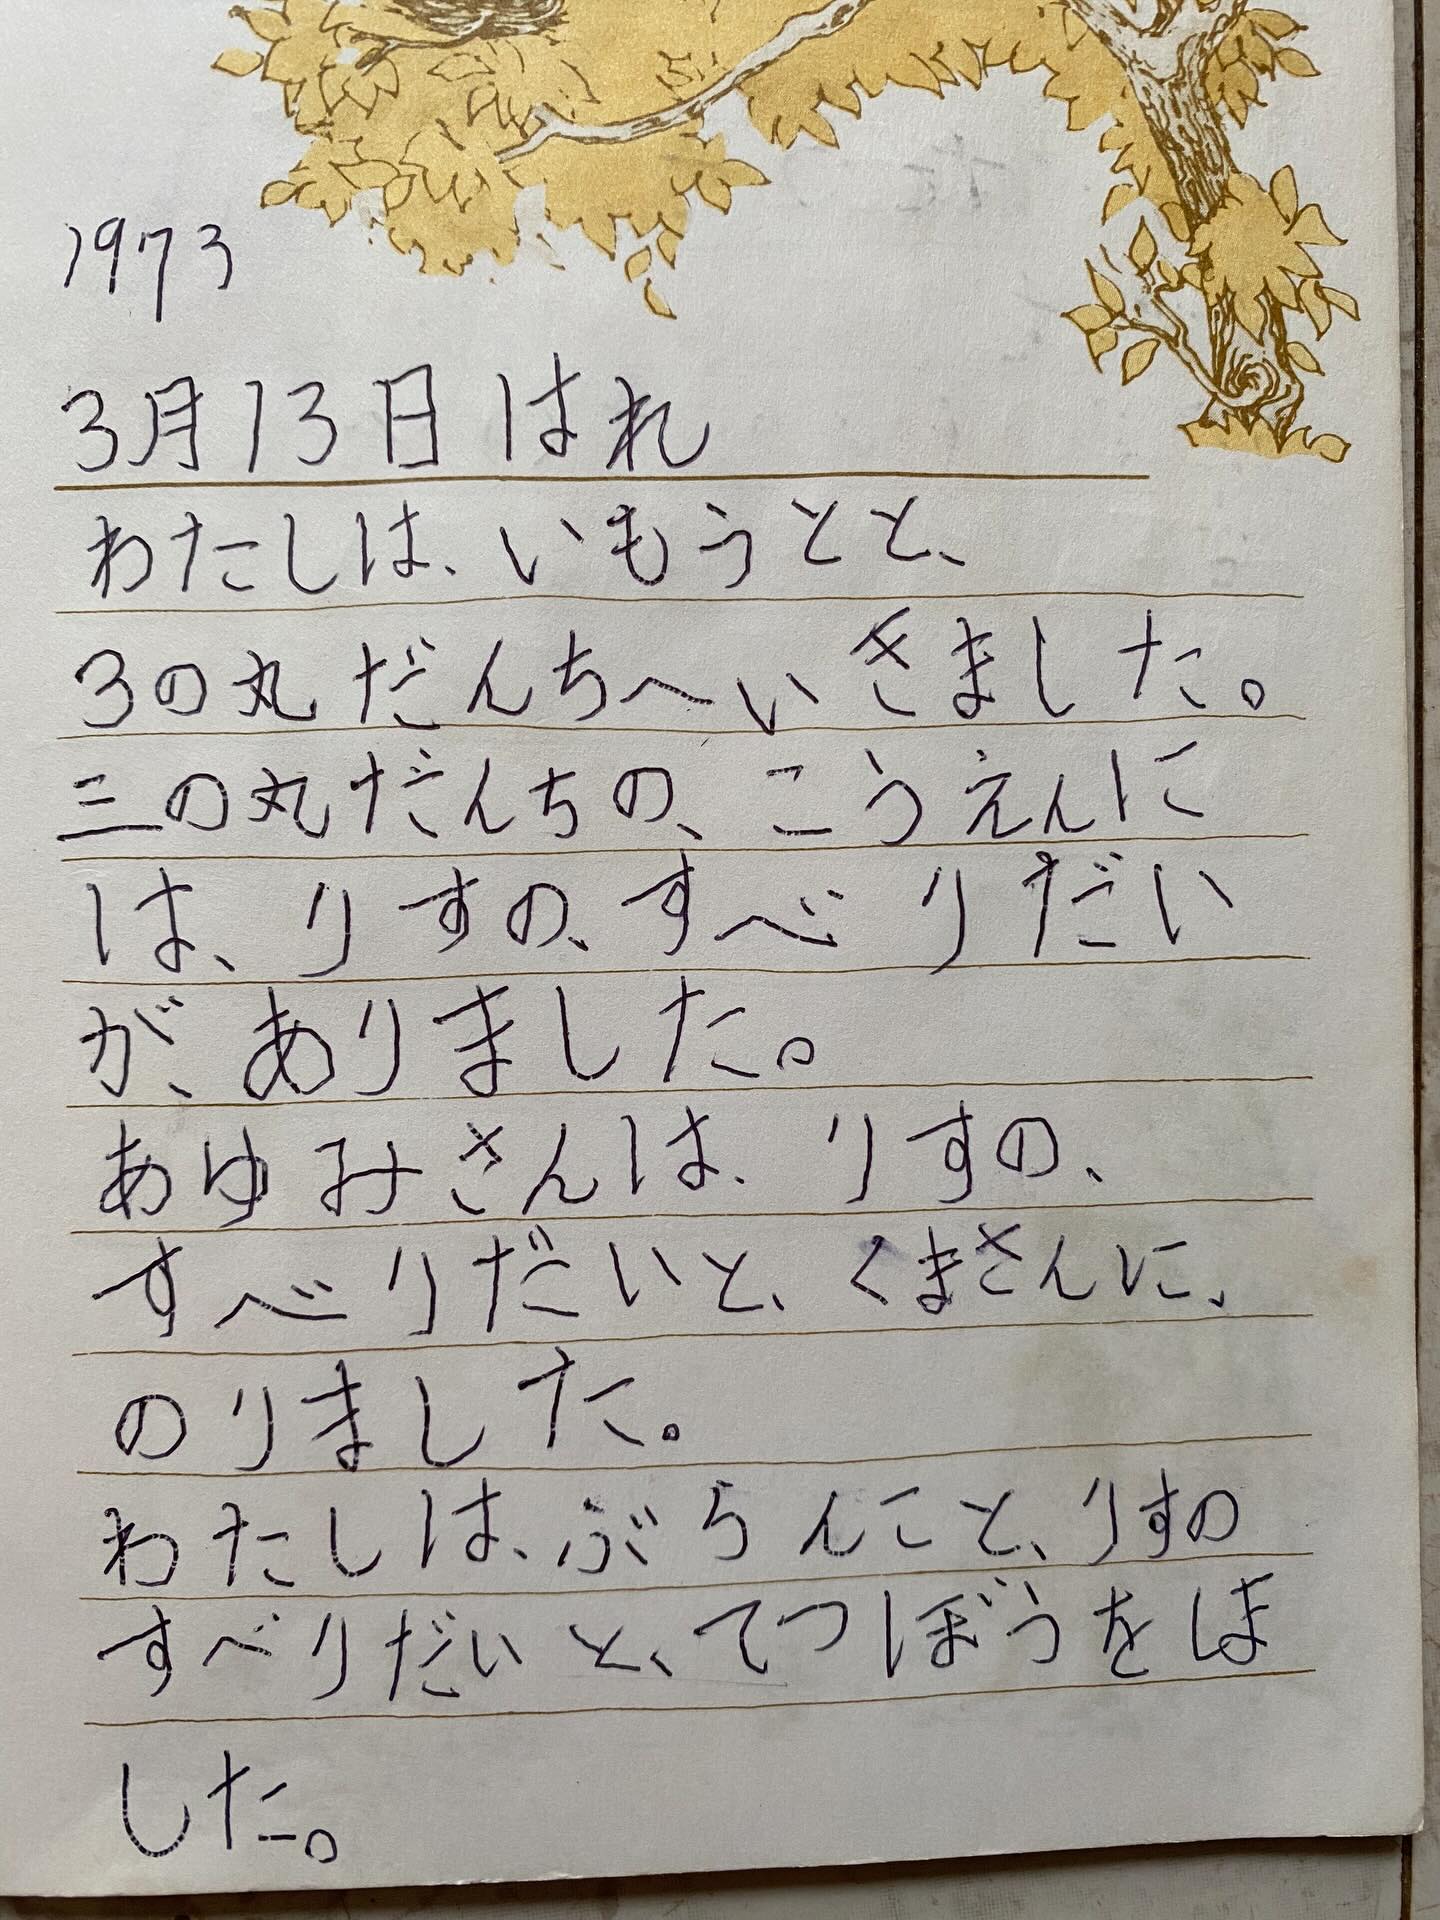 1973
3月13日 はれ
わたしは、いもうとと、
3の丸だんちへいきました。
三の丸だんちの、こうえんに
は、りすの、すべりだい
が、ありました。
あゆみさんは、りすの、
すべりだいと、くまさんに、
のりました。
わたしは、ぶらんこと、りすの
すべりだいと、てつぼうをしま
した。